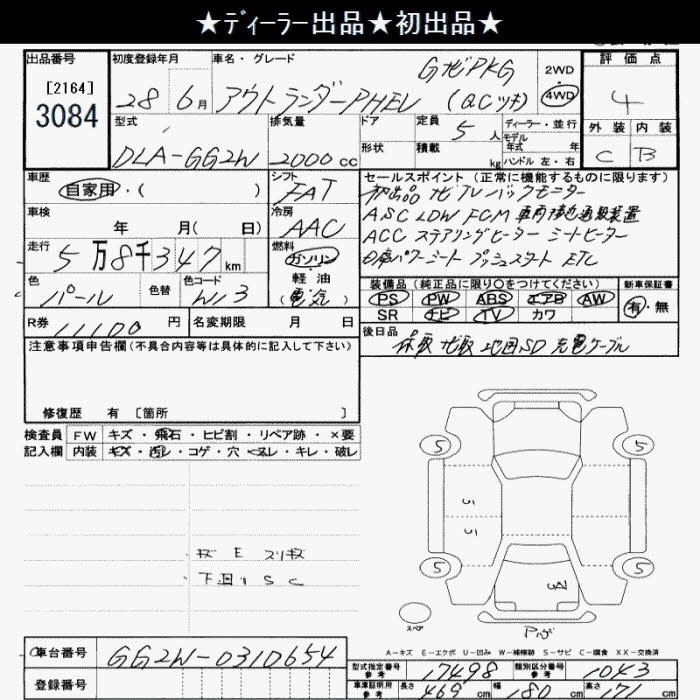 ★ディーラー出品★初出品★
出品番号
[2164]
3084
初度登録年月
28 6月
車名・グレード
GナビPKG
アウトランダーPHEV (QCツキ)
2WD
4WD
評価点
4
外装 内装
C B
型式
DLA-GG2W
排気量
2000cc
ドア
形状
定員
5人
積載
kg
ディーラー・並行
モデル
年式 年
ハンドル 左・右
車歴
自家用・( )
シフト
FAT
車検
年 月( 日)
冷房
AAC
走行
5万8千347km
燃料
ガソリン
軽油
(電気)
色
パール
色替
色コード
W13
R券
11100円
名変期限 月 日
セールスポイント (正常に機能するものに限ります)
初出品 ナビ TV バックモニター
ASC LDW FCM 車両接近通報装置
ACC ステアリングヒーター シートヒーター
パワーシート プッシュスタート ETC
装備品 (純正品に限り○をつけてください)
PS PW ABS エアB AW
SR ナビ TV カワ
新車保証書
有・無
後日品
保取 ナビ取 地図SD 充電ケーブル
注意事項申告欄(不具合内容等は具体的に記入して下さい)
修復歴 有 [箇所 ]
検査員
記入欄
FW キズ・飛石・ヒビ割・リペア跡・×要
内装 キズ・汚レ・コゲ・穴・スレ・キレ・破レ
E スリ
下回り SC
5 5
5 5
スペア
A-キズ E-エクボ U-凹み W-補修跡 S-サビ C-腐食 XX-交換済
車台番号
GG2W-0310654
登録番号
型式指定番号
参考
17498
類別区分番号
参考
1043
車庫証明用
参考
長さ 469cm 幅 180cm 高さ 171cm